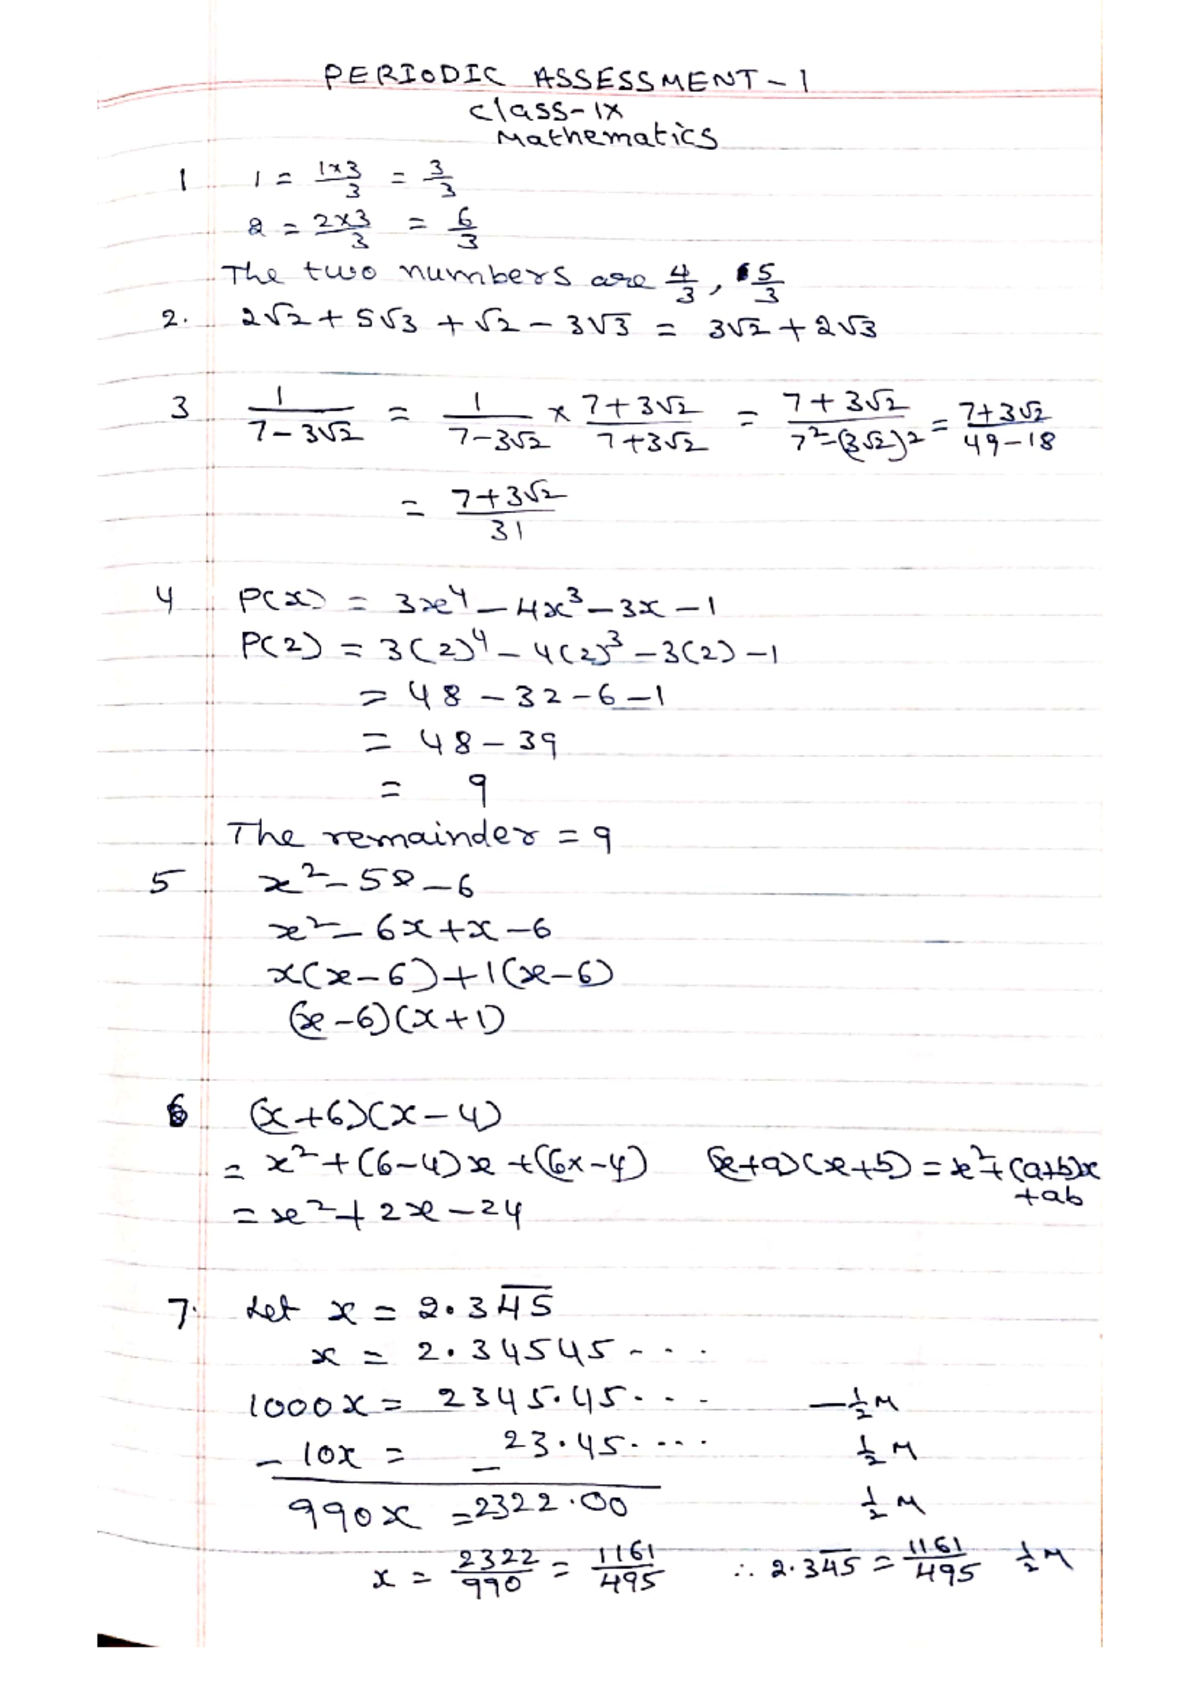 PERIODIC ASSESSMENT - 1
Class - IX
Mathematics
1 1 = 1×3/3 = 3/3
2 = 2×3/3 = 6/3
The two numbers are 4/3, 5/3
2. 2√2 + 5√3 + √2 - 3√3 = 3√2 + 2√3
3 1/(7-3√2) = 1/(7-3√2) × (7+3√2)/(7+3√2) = (7+3√2)/(7²-(3√2)2) = (7+3√2)/(49-18)
= (7+3√2)/31
4 P(x) = 3x⁴ - 4x³ - 3x - 1
P(2) = 3(2)⁴ - 4(2)³ - 3(2) - 1
= 48 - 32 - 6 - 1
= 48 - 39
= 9
The remainder = 9
5 x² - 5x - 6
x² - 6x + x - 6
x(x-6) + 1(x-6)
(x-6)(x+1)
6 (x+6)(x-4)
= x² + (6-4)x + (6x-4) (x+a)(x+b) = x² + (a+b)x
+ab
= x² + 2x - 24
7. Let x = 2.34̅5̅
x = 2.34545 - . .
1000x = 2345.45 - . . - ½ M
- 10x = - 23.45 - . . . ½ M
990x = 2322.00 ½ M
x = 2322/990 = 1161/495 ∴ 2.34̅5̅ = 1161/495 ½ M